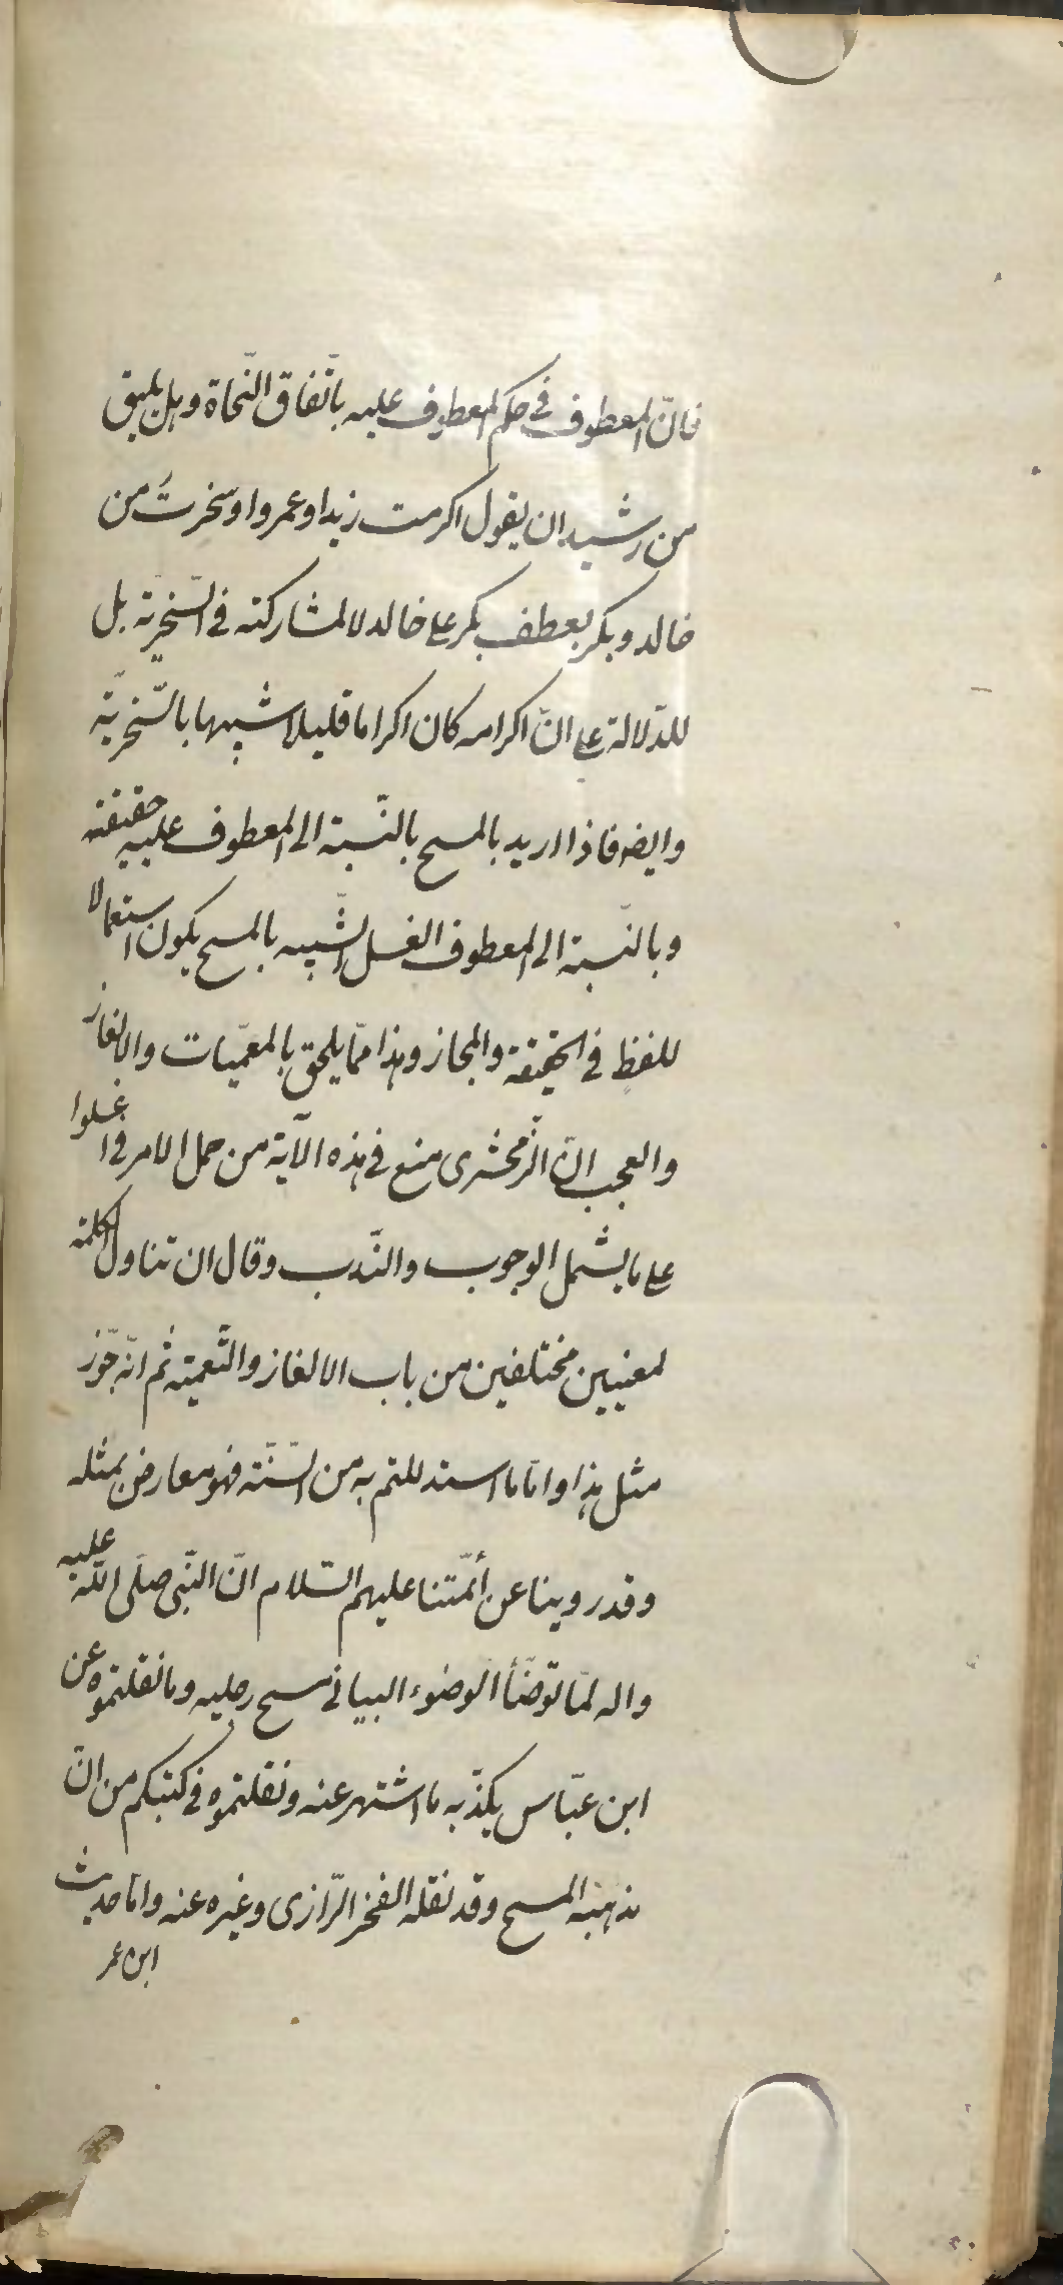 فانّ المعطوف فى حكم المعطوف عليه باتّفاق النّحاة وهل يليق
من رشيد ان يقول اكرمت زيدا وعمروا وسخرتُ من
خالد وبكر بعطف بكر على خالد لا لمشاركته فى السّخريّة بل
للدّلالة على انّ اكرامه كان اكراما قليلا شبيها بالسّخريّة
وايضه فاذا اريد بالمسح بالنّسبة الى المعطوف عليه حقيقته
وبالنّسبة الى المعطوف الغسل الشّبيه بالمسح يكون استعمالا
للفظ فى الحقيقة والمجاز وهذا ممّا يلحق بالمعمّيات والالغاز
والعجب انّ الزّمخشرى منع فى هذه الآية من حمل الامر فى اغسلوا
على ما يشمل الوجوب والنّدب وقال ان تناول الكلمة
لمعنيين مختلفين من باب الالغاز والتّعمية ثم انّه جوّز
مثل هذا وامّا ما استدللتم به من السّنّة فهو معارض بمثله
وقد روينا عن أئمّتنا عليهم السّلام انّ النّبى صلّى اللّه عليه
واله لمّا توضّأ الوضوء البيانى مسح رجليه وما نقلتموه عن
ابن عبّاس يكذّبه ما اشتهر عنه ونقلتموه فى كتبكم من انّ
مذهبه المسح وقد نقله الفخر الرّازى وغيره عنه وامّا حديث
ابن عمر